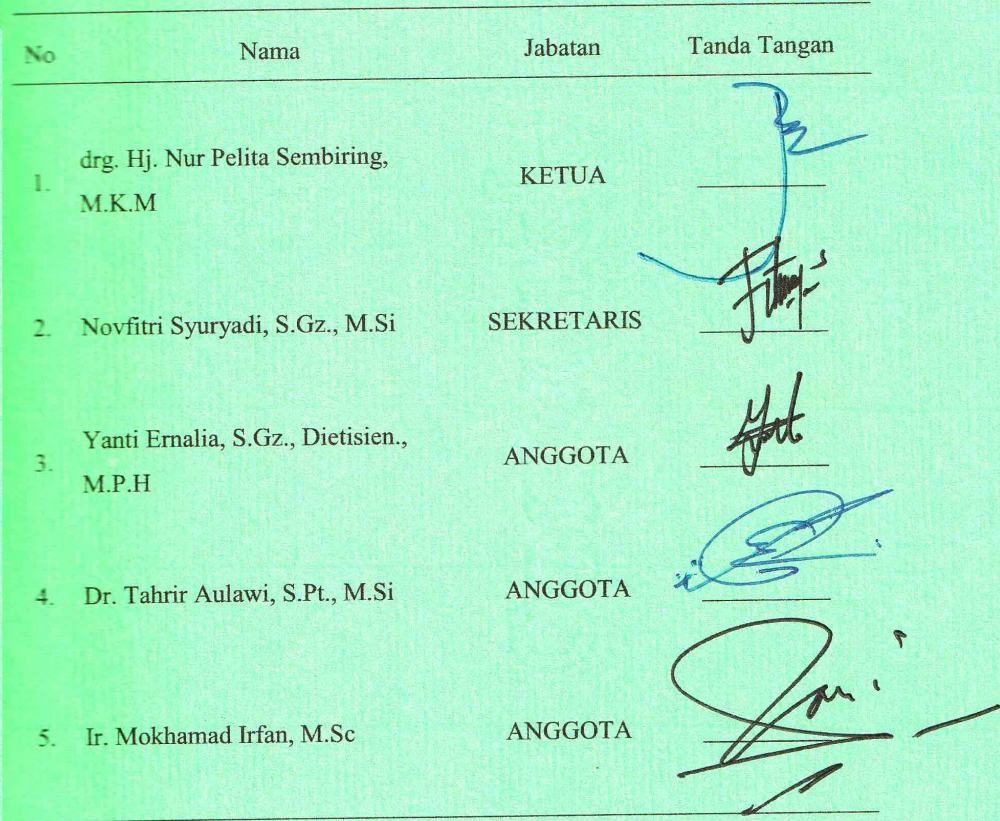 No Nama Jabatan Tanda Tangan
drg. Hj. Nur Pelita Sembiring,
1. KETUA
M.K.M
2. Novfitri Syuryadi, S.Gz., M.Si SEKRETARIS
Yanti Ernalia, S.Gz., Dietisien.,
3. ANGGOTA
M.P.H
4. Dr. Tahrir Aulawi, S.Pt., M.Si ANGGOTA
5. Ir. Mokhamad Irfan, M.Sc ANGGOTA